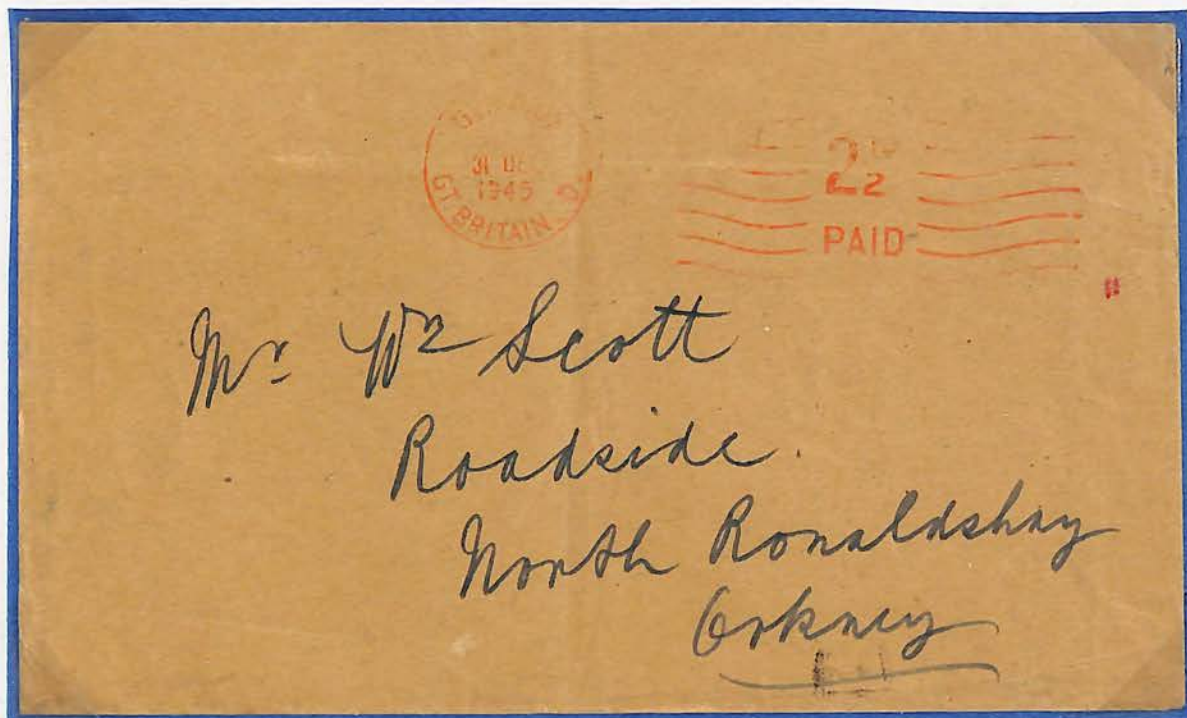 31 DE
1945
GT. BRITAIN
2½
PAID
Mr Wm Scott
Roadside
North Ronaldshay
Orkney